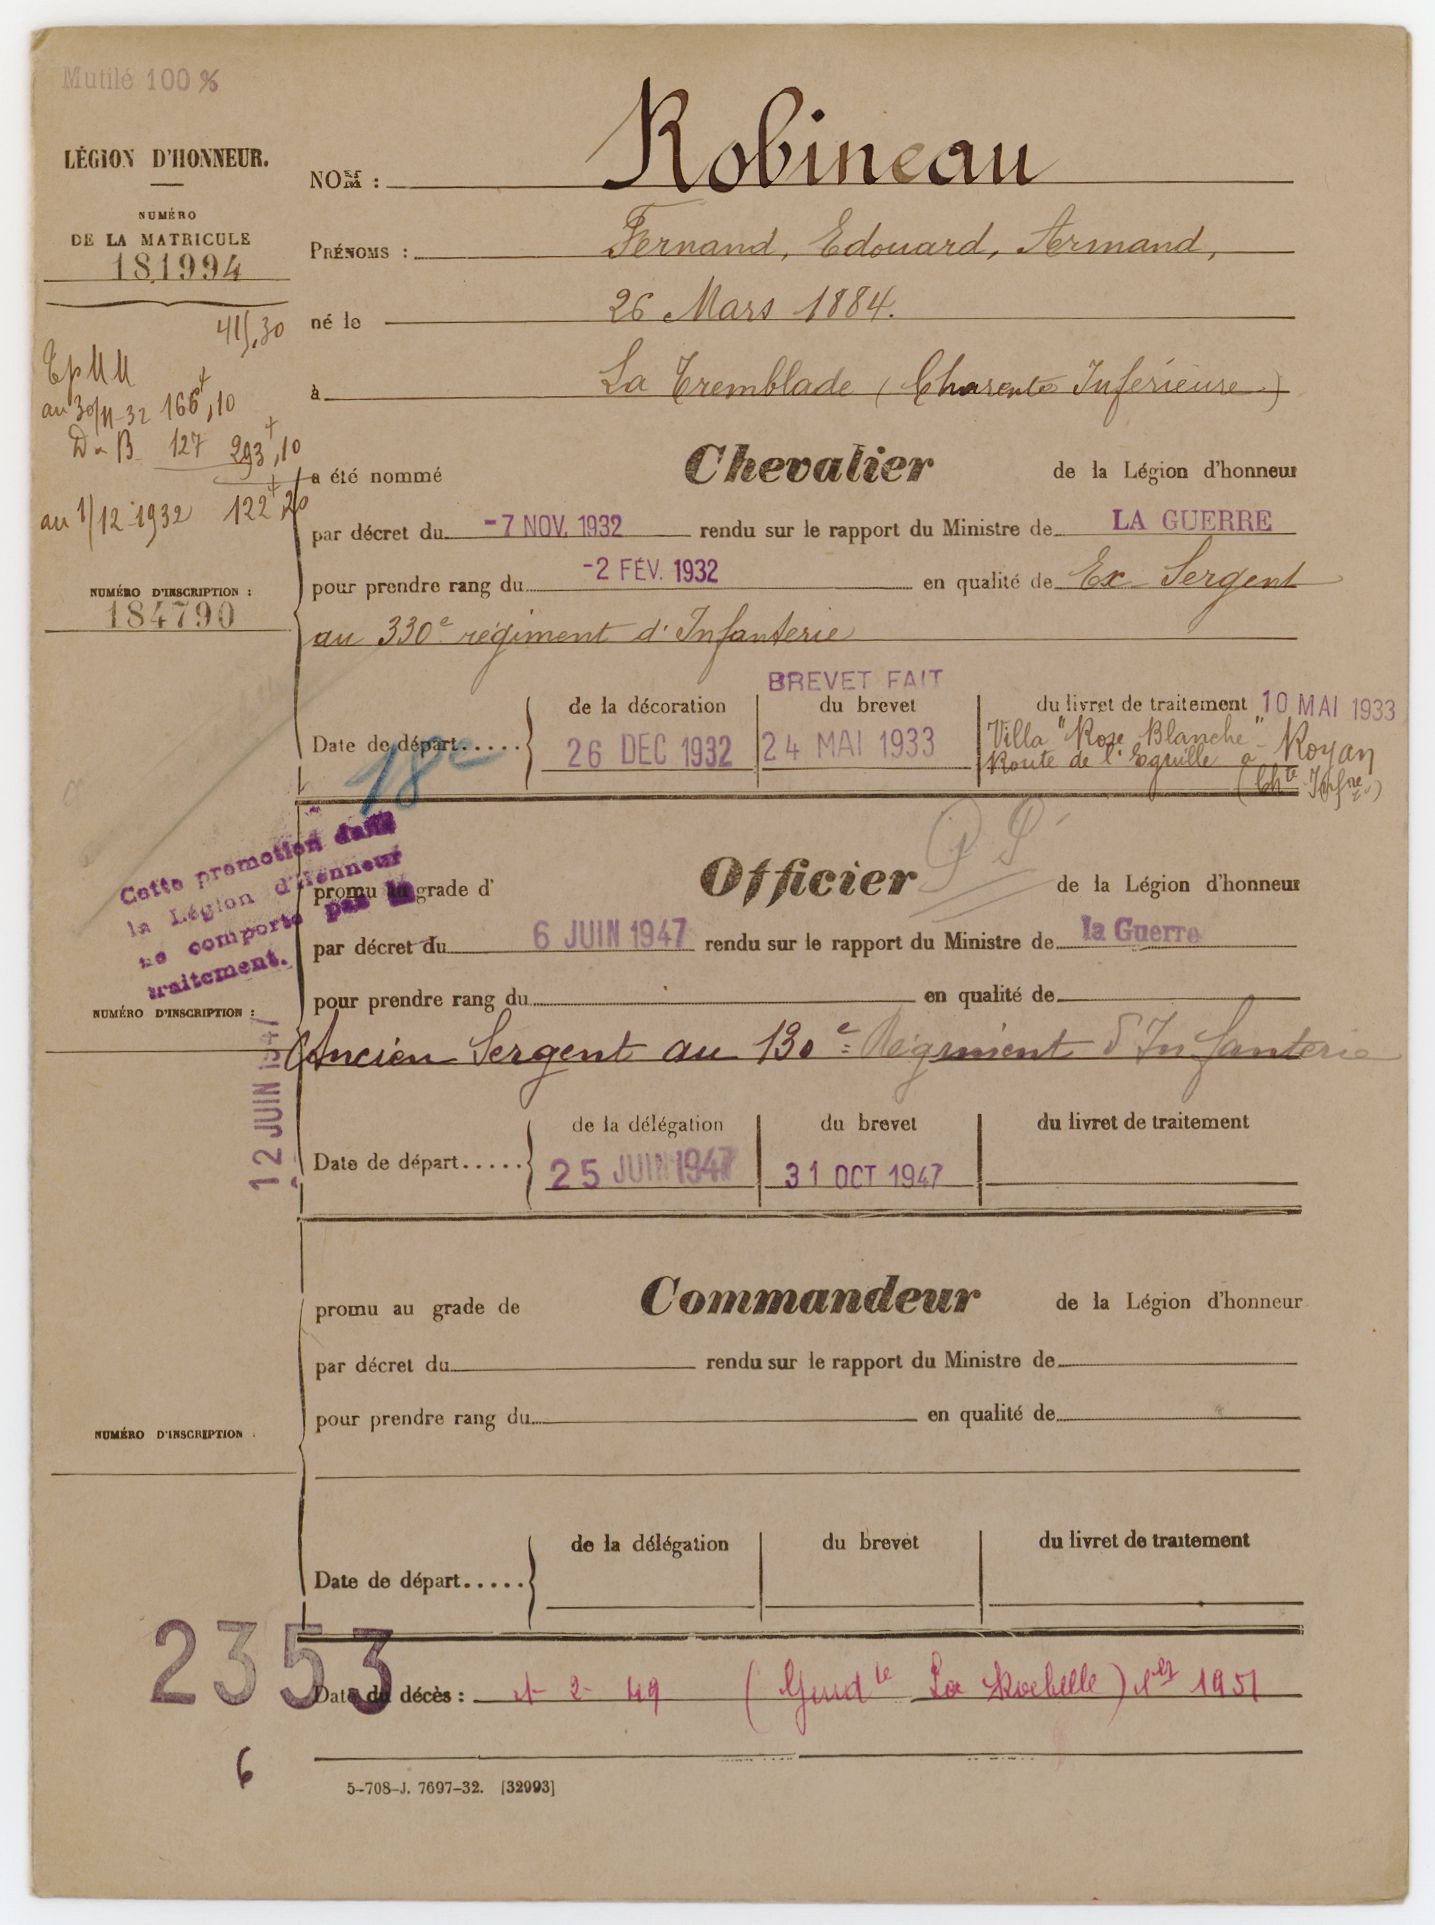 Mutilé 100 %
LÉGION D'HONNEUR.
NUMÉRO
DE LA MATRICULE
181994
NOM : Robineau
PRÉNOMS : Fernand, Edouard, Armand,
né le 26 Mars 1884.
à La Tremblade (Charente Inférieure)
415,30
au 30/11-32 166,10
D - B 127 293,10
au 1/12-1932 122,20
a été nommé Chevalier de la Légion d'honneur
par décret du -7 NOV. 1932 rendu sur le rapport du Ministre de LA GUERRE
pour prendre rang du -2 FÉV. 1932 en qualité de Ex-Sergent
au 330e régiment d'Infanterie
NUMÉRO D'INSCRIPTION :
184790
BREVET FAIT
de la décoration du brevet du livret de traitement 10 MAI 1933
Date de départ..... 26 DEC 1932 24 MAI 1933 Villa "Rose Blanche"
Route de l'Eguille à Royan
(Chte Infre)
18e
Cette promotion dans
la Légion d'Honneur
ne comporte pas le
traitement.
promu au grade d' Officier de la Légion d'honneur
par décret du 6 JUIN 1947 rendu sur le rapport du Ministre de la Guerre
pour prendre rang du en qualité de
NUMÉRO D'INSCRIPTION :
Ancien Sergent au 130e Régiment d'Infanterie
12 JUIN 1947
de la délégation du brevet du livret de traitement
Date de départ..... 25 JUIN 1947 31 OCT 1947
promu au grade de Commandeur de la Légion d'honneur
par décret du rendu sur le rapport du Ministre de
pour prendre rang du en qualité de
NUMÉRO D'INSCRIPTION
de la délégation du brevet du livret de traitement
Date de départ.....
2353
Date du décès : 1-2-49 (Gendie La Rochelle) 1951
6
5-708-J. 7697-32. [32993]